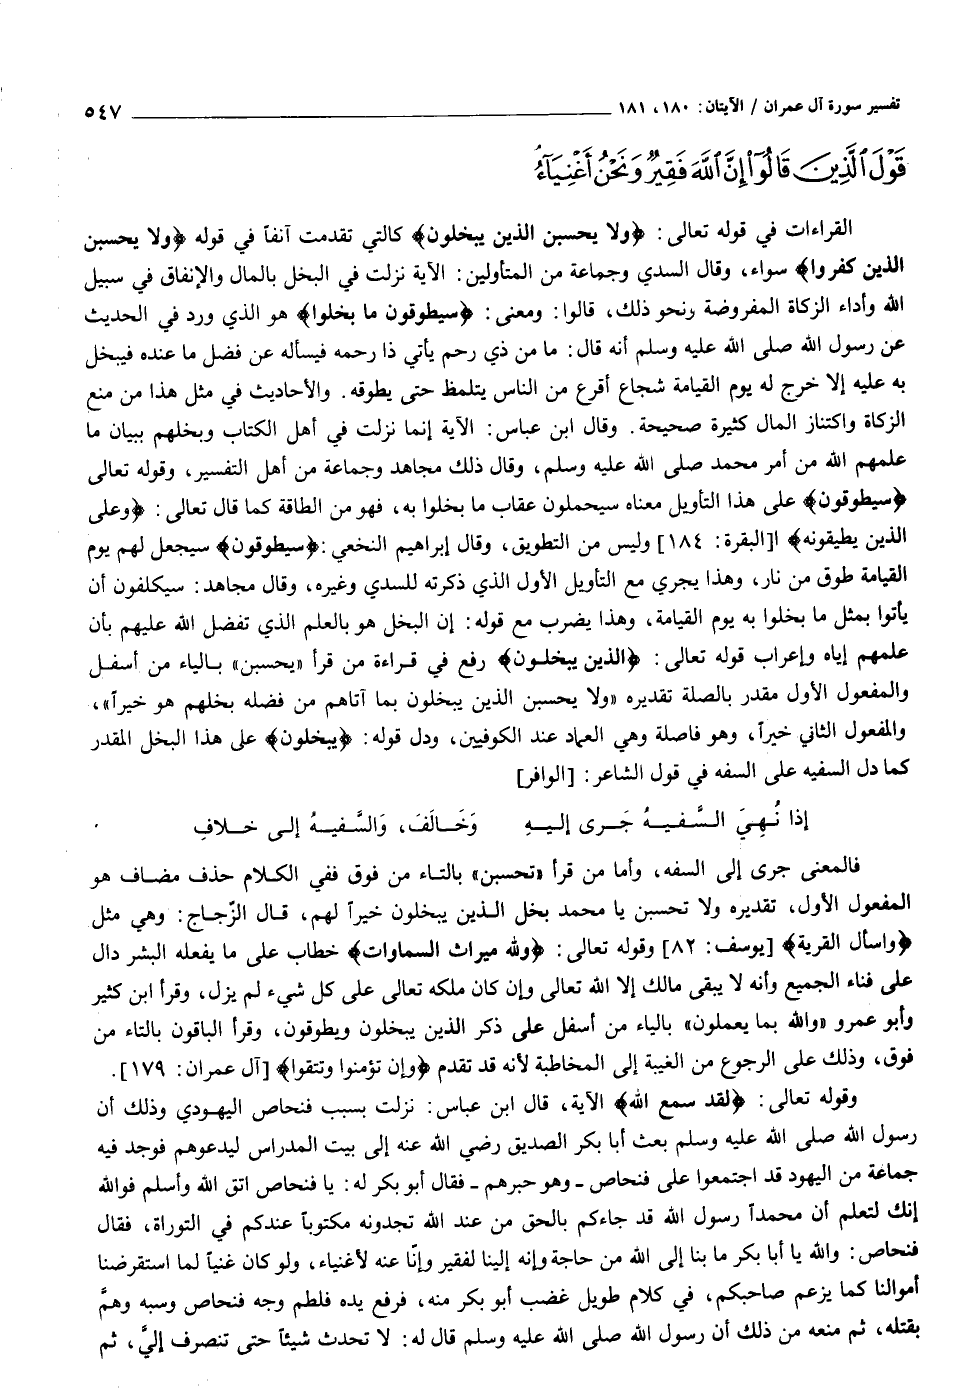 تفسير سورة آل عمران / الآيتان: ١٨٠، ١٨١ ٥٤٧
قَوْلَ ٱلَّذِينَ قَالُوٓاْ إِنَّ ٱللَّهَ فَقِيرٌ وَنَحْنُ أَغْنِيَآءُ
القراءات في قوله تعالى: ﴿ولا يحسبن الذين يبخلون﴾ كالتي تقدمت آنفاً في قوله ﴿ولا يحسبن
الذين كفروا﴾ سواء، وقال السدي وجماعة من المتأولين: الآية نزلت في البخل بالمال والإنفاق في سبيل
الله وأداء الزكاة المفروضة ونحو ذلك، قالوا: ومعنى: ﴿سيطوقون ما بخلوا﴾ هو الذي ورد في الحديث
عن رسول الله صلى الله عليه وسلم أنه قال: ما من ذي رحم يأتي ذا رحمه فيسأله عن فضل ما عنده فيبخل
به عليه إلا خرج له يوم القيامة شجاع أقرع من الناس يتلمظ حتى يطوقه. والأحاديث في مثل هذا من منع
الزكاة واكتناز المال كثيرة صحيحة. وقال ابن عباس: الآية إنما نزلت في أهل الكتاب وبخلهم ببيان ما
علمهم الله من أمر محمد صلى الله عليه وسلم، وقال ذلك مجاهد وجماعة من أهل التفسير، وقوله تعالى
﴿سيطوقون﴾ على هذا التأويل معناه سيحملون عقاب ما بخلوا به، فهو من الطاقة كما قال تعالى: ﴿وعلى
الذين يطيقونه﴾ ا[البقرة: ١٨٤] وليس من التطويق، وقال إبراهيم النخعي:﴿سيطوقون﴾ سيجعل لهم يوم
القيامة طوق من نار، وهذا يجري مع التأويل الأول الذي ذكرته للسدي وغيره، وقال مجاهد: سيكلفون أن
يأتوا بمثل ما بخلوا به يوم القيامة، وهذا يضرب مع قوله: إن البخل هو بالعلم الذي تفضل الله عليهم بأن
علمهم إياه وإعراب قوله تعالى: ﴿الذين يبخلون﴾ رفع في قراءة من قرأ «يحسبن» بالياء من أسفل
والمفعول الأول مقدر بالصلة تقديره «ولا يحسبن الذين يبخلون بما آتاهم من فضله بخلهم هو خيراً»،
والمفعول الثاني خيراً، وهو فاصلة وهي العماد عند الكوفيين، ودل قوله: ﴿يبخلون﴾ على هذا البخل المقدر
كما دل السفيه على السفه في قول الشاعر: [الوافر]
إذا نُهِيَ السَّفيهُ جَرى إليهِ وَخَالَفَ، وَالسَّفيهُ إلى خلافِ
فالمعنى جرى إلى السفه، وأما من قرأ «تحسبن» بالتاء من فوق ففي الكلام حذف مضاف هو
المفعول الأول، تقديره ولا تحسبن يا محمد بخل الذين يبخلون خيراً لهم، قال الزّجاج: وهي مثل
﴿واسأل القرية﴾ [يوسف: ٨٢] وقوله تعالى: ﴿ولله ميراث السماوات﴾ خطاب على ما يفعله البشر دال
على فناء الجميع وأنه لا يبقى مالك إلا الله تعالى وإن كان ملكه تعالى على كل شيء لم يزل، وقرأ ابن كثير
وأبو عمرو «والله بما يعملون» بالياء من أسفل على ذكر الذين يبخلون ويطوقون، وقرأ الباقون بالتاء من
فوق، وذلك على الرجوع من الغيبة إلى المخاطبة لأنه قد تقدم ﴿وإن تؤمنوا وتتقوا﴾ [آل عمران: ١٧٩].
وقوله تعالى: ﴿لقد سمع الله﴾ الآية، قال ابن عباس: نزلت بسبب فنحاص اليهودي وذلك أن
رسول الله صلى الله عليه وسلم بعث أبا بكر الصديق رضي الله عنه إلى بيت المدراس ليدعوهم فوجد فيه
جماعة من اليهود قد اجتمعوا على فنحاص ـ وهو حبرهم ـ فقال أبو بكر له: يا فنحاص اتق الله وأسلم فوالله
إنك لتعلم أن محمداً رسول الله قد جاءكم بالحق من عند الله تجدونه مكتوباً عندكم في التوراة، فقال
فنحاص: والله يا أبا بكر ما بنا إلى الله من حاجة وإنه إلينا لفقير وإنّا عنه لأغنياء، ولو كان غنياً لما استقرضنا
أموالنا كما يزعم صاحبكم، في كلام طويل غضب أبو بكر منه، فرفع يده فلطم وجه فنحاص وسبه وهمَّ
بقتله، ثم منعه من ذلك أن رسول الله صلى الله عليه وسلم قال له: لا تحدث شيئاً حتى تنصرف إليَّ، ثم